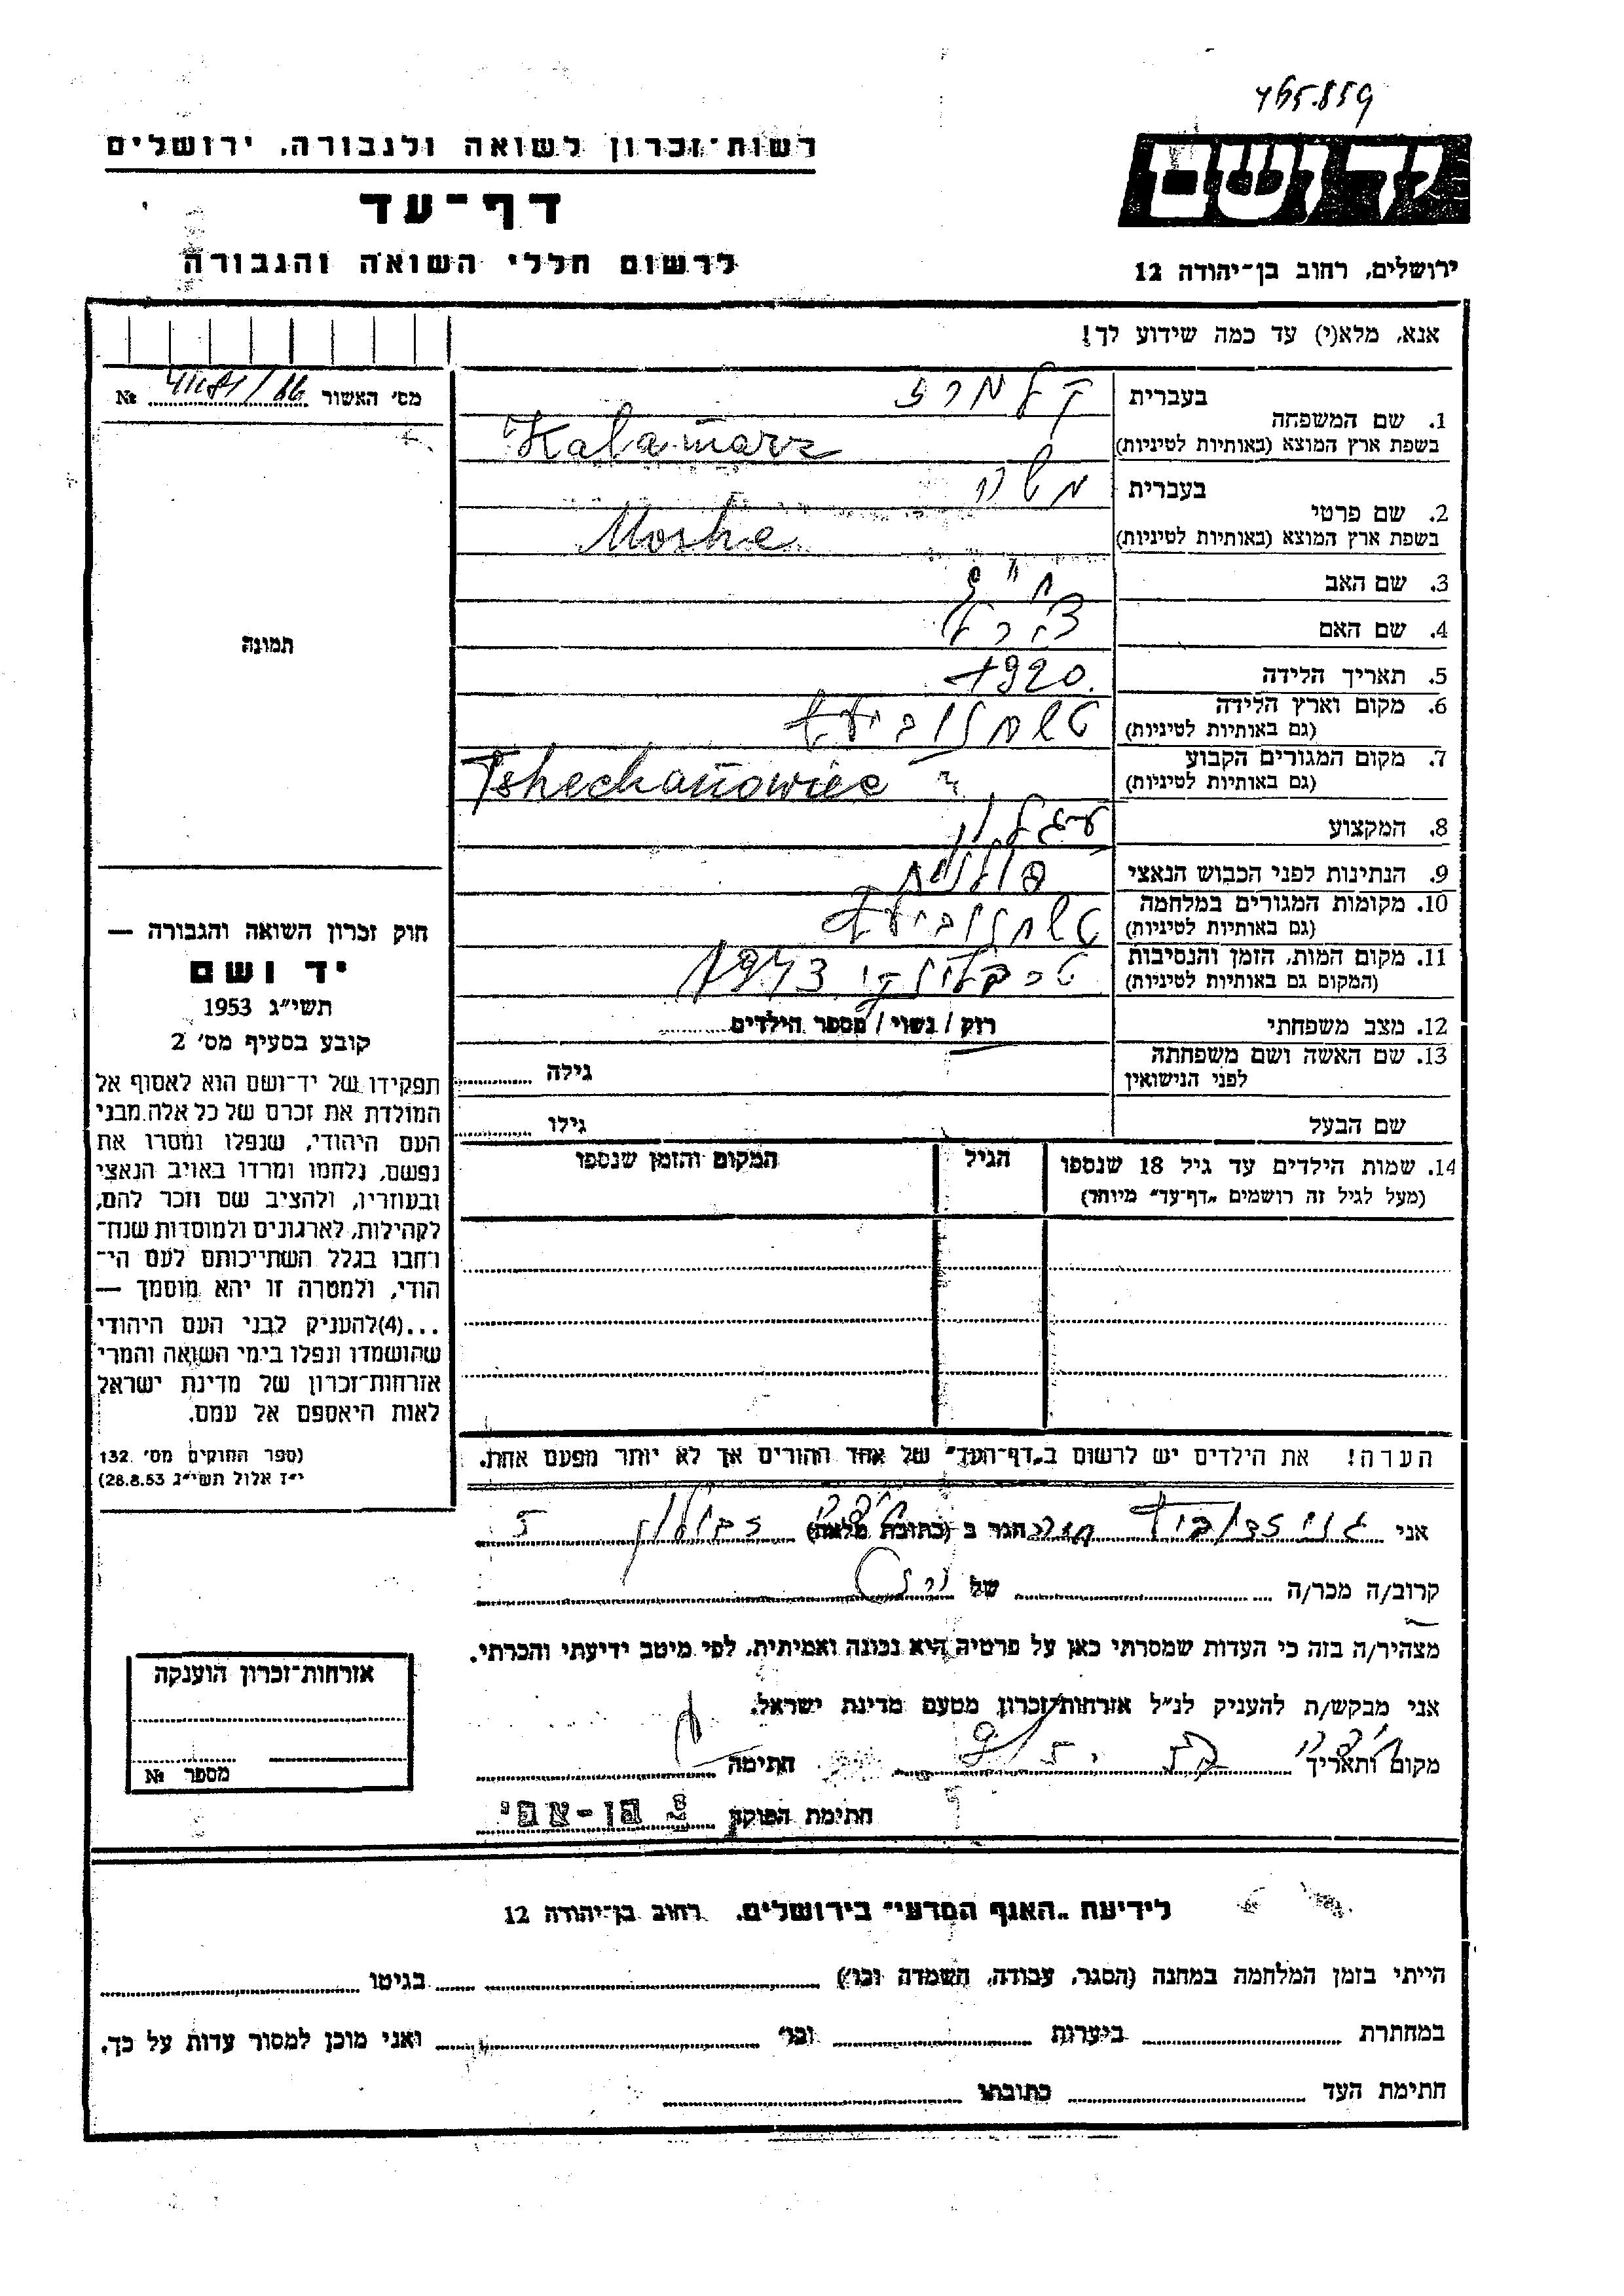 465.859
רשות־זכרון לשואה ולגבורה, ירושלים
יד ושם
דף־עד
לרשום חללי השואה והגבורה
ירושלים, רחוב בן־יהודה 12
אנא, מלא(י) עד כמה שידוע לך!
מס' האשור №
בעברית קלמרז
1. שם המשפחה
בשפת ארץ המוצא (באותיות לטיניות) Kalamarz
בעברית משה
2. שם פרטי
בשפת ארץ המוצא (באותיות לטיניות) Moshe
3. שם האב
4. שם האם
5. תאריך הלידה 1920
6. מקום וארץ הלידה
(גם באותיות לטיניות)
7. מקום המגורים הקבוע
(גם באותיות לטיניות) Tshechanowiec
8. המקצוע עגלון
9. הנתינות לפני הכבוש הנאצי פולנית
10. מקומות המגורים במלחמה
(גם באותיות לטיניות)
11. מקום המות, הזמן והנסיבות טרבלינקי 1943
(המקום גם באותיות לטיניות)
12. מצב משפחתי רוק / נשוי / מספר הילדים
13. שם האשה ושם משפחתה
לפני הנישואין גילה
שם הבעל גילו
14. שמות הילדים עד גיל 18 שנספו הגיל המקום והזמן שנספו
(מעל לגיל זה רושמים „דף־עד" מיוחד)
תמונה
חוק זכרון השואה והגבורה —
יד ושם
תשי"ג 1953
קובע בסעיף מס' 2
תפקידו של יד־ושם הוא לאסוף אל
המולדת את זכרם של כל אלה מבני
העם היהודי, שנפלו ומסרו את
נפשם, נלחמו ומרדו באויב הנאצי
ובעוזריו, ולהציב שם וזכר להם,
לקהילות, לארגונים ולמוסדות שנח־
רחבו בגלל השתייכותם לעם הי־
הודי, ולמטרה זו יהא מוסמך —
...(4)להעניק לבני העם היהודי
שהושמדו ונפלו בימי השואה והמרי
אזרחות־זכרון של מדינת ישראל
לאות היאספם אל עמם.
(ספר החוקים מס' 132
י"ז אלול תשי"ג 28.8.53)
הערה! את הילדים יש לרשום ב„דף־העד" של אחד ההורים אך לא יותר מפעם אחת.
אני הגר ב (כתובת מלאה)
קרוב/ה מכר/ה של
מצהיר/ה בזה כי העדות שמסרתי כאן על פרטיה היא נכונה ואמיתית, לפי מיטב ידיעתי והכרתי.
אני מבקש/ת להעניק לנ"ל אזרחות־זכרון מטעם מדינת ישראל.
מקום ותאריך חתימה
חתימת הפוקד
אזרחות־זכרון הוענקה
מספר №
לידיעת „האגף המדעי" בירושלים, רחוב בן־יהודה 12
הייתי בזמן המלחמה במחנה (הסגר, עבודה, השמדה וכו') בגיטו
במחתרת ביערות וכו' ואני מוכן למסור עדות על כך.
חתימת העד כתובתו